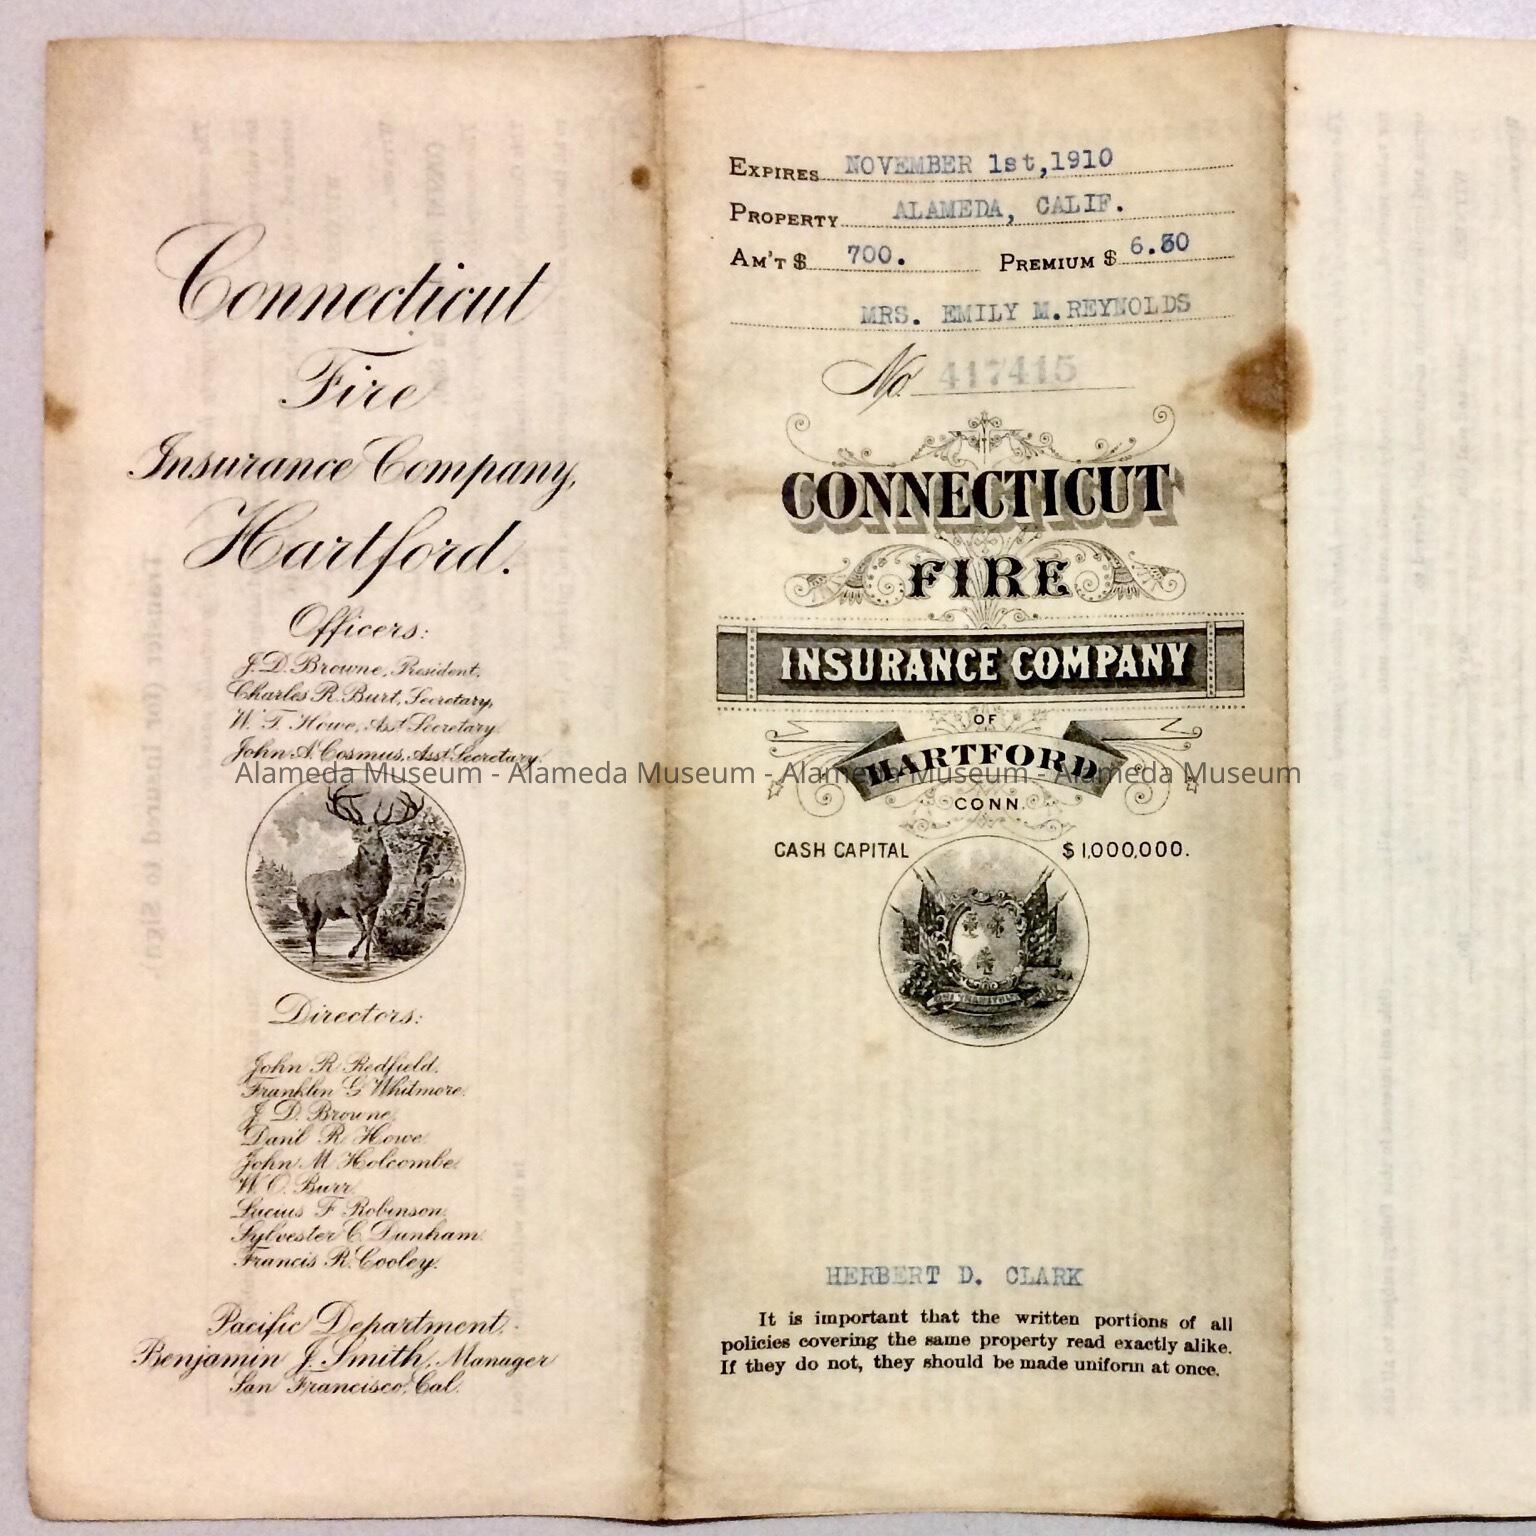 Connecticut
Fire
Insurance Company,
Hartford.
Officers:
J. D. Browne, President.
Charles R. Burt, Secretary,
W. T. Howe, Asst Secretary.
John A. Cosmus, Asst Secretary.
Directors:
John R. Redfield.
Franklin G. Whitmore.
J. D. Browne.
Dan'l R. Howe.
John M. Holcombe.
W. O. Burr.
Lucius F. Robinson.
Sylvester C. Dunham.
Francis R. Cooley.
Pacific Department.
Benjamin J. Smith, Manager
San Francisco, Cal.
EXPIRES NOVEMBER 1st,1910
PROPERTY ALAMEDA, CALIF.
AM'T $ 700. PREMIUM $ 6.30
MRS. EMILY M.REYNOLDS
No. 417415
CONNECTICUT
FIRE
INSURANCE COMPANY
OF
HARTFORD
CONN.
CASH CAPITAL $1,000,000.
HERBERT D. CLARK
It is important that the written portions of all
policies covering the same property read exactly alike.
If they do not, they should be made uniform at once.
Alameda Museum - Alameda Museum - Alameda Museum - Alameda Museum